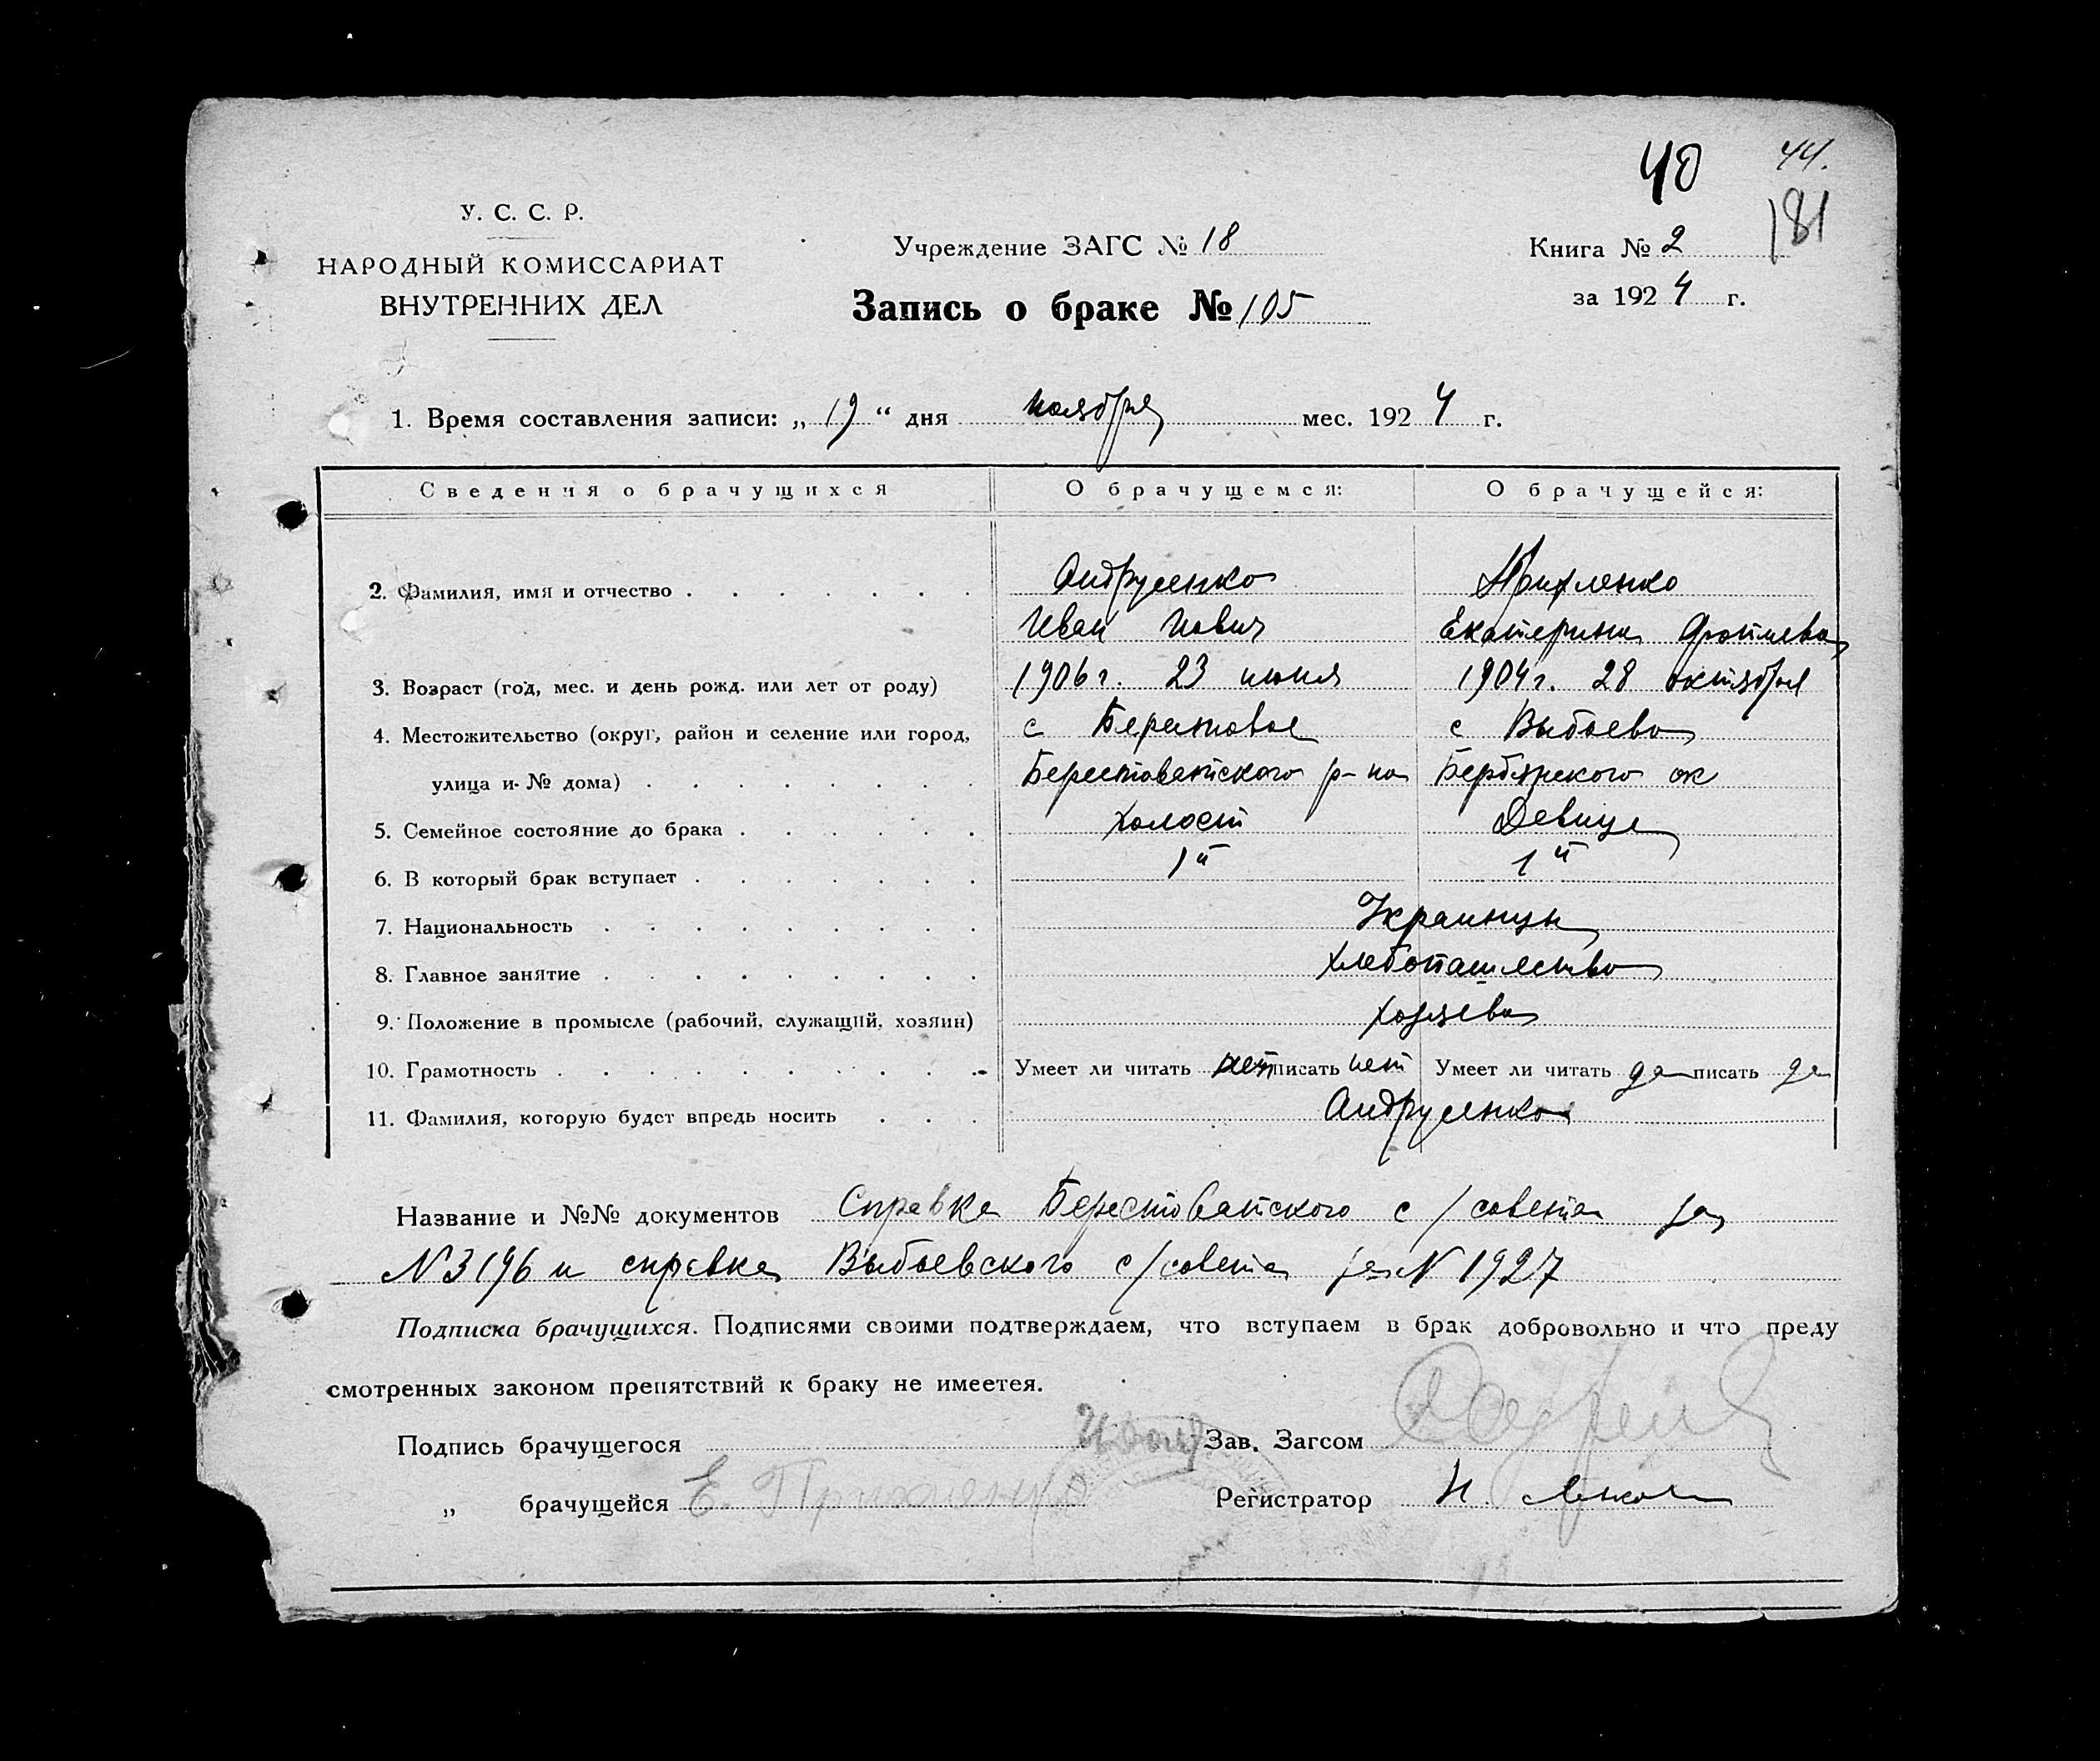 40 44.
181
У. С. С. Р.
НАРОДНЫЙ КОМИССАРИАТ
ВНУТРЕННИХ ДЕЛ
Учреждение ЗАГС № 18
Книга № 2
Запись о браке № 105
за 1924 г.
1. Время составления записи: „ 19 “ дня ноября мес. 1924 г.
Сведения о брачущихся О брачущемся: О брачущейся:
2. Фамилия, имя и отчество Андрущенко Прихленко
Иван Иович Екатерина
3. Возраст (год, мес. и день рожд. или лет от роду) 1906 г. 23 июня 1904 г. 28 октября
4. Местожительство (округ, район и селение или город, с Берестовое с Выбоева
улица и № дома) Берестоватского р-на Бердянского ок
5. Семейное состояние до брака холост Девица
6. В который брак вступает 1й 1й
7. Национальность Украинцы
8. Главное занятие Хлебопашество
9. Положение в промысле (рабочий, служащий, хозяин) хозяева
10. Грамотность Умеет ли читать нет писать нет Умеет ли читать да писать да
11. Фамилия, которую будет впредь носить Андрущенко
Название и №№ документов Справка Берестоватского с/совета за
N 3196 и справка Выбоевского с/совета за N 1927
Подписка брачущихся. Подписями своими подтверждаем, что вступаем в брак добровольно и что преду
смотренных законом препятствий к браку не имеется.
Подпись брачущегося Зав. Загсом
„ брачущейся Е. Прихленко Регистратор